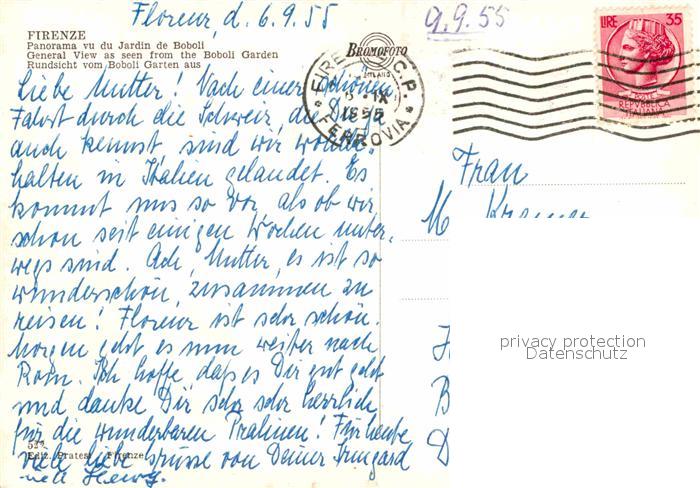 Florenz, d. 6.9.55
9.9.55
FIRENZE
Panorama vu du Jardin de Boboli
General View as seen from the Boboli Garden
Rundsicht vom Boboli Garten aus
BROMOFOTO
MILANO
LIRE 35
POSTE
REPVBBLICA
ITALIANA
FIRENZE C.P.
IX
1955
FERROVIA
Liebe Mutter! Nach einer schönen
Fahrt durch die Schweiz, die Du ja
auch kennst, sind wir wohlbe-
halten in Italien gelandet. Es
kommt uns so vor, als ob wir
schon seit einigen Wochen unter-
wegs sind. Ach, Mutter, es ist so
wunderschön, zusammen zu
reisen! Florenz ist sehr schön.
Morgen geht es nun weiter nach
Rom. Ich hoffe, daß es Dir gut geht
und danke Dir sehr sehr herzlich
für die wunderbaren Pralinen! Für heute
viele liebe Grüsse von Deiner Irmgard
und
Frau
M
privacy protection
Datenschutz
B
D
Ediz. Pratesi Firenze